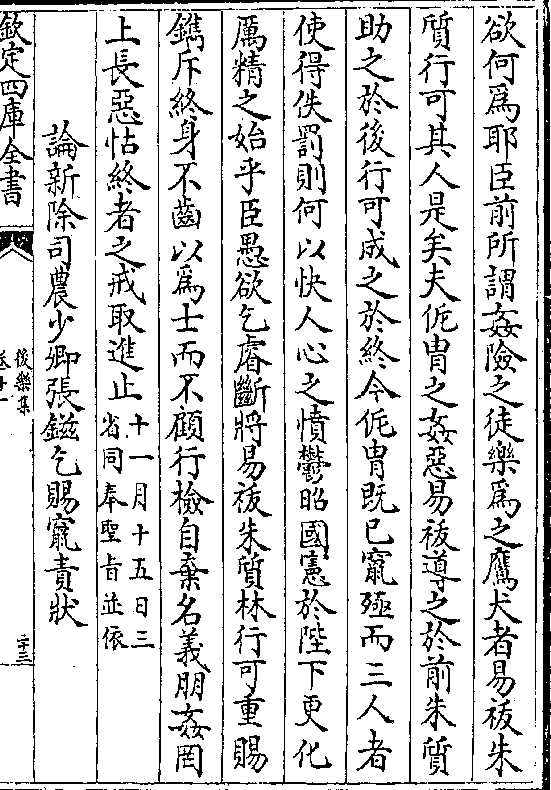 欲何爲耶臣前所謂姦險之徒樂爲之鷹犬者易祓朱
質行可其人是矣夫侂胄之姦惡易祓導之於前朱質
助之於後行可成之於終今侂胄既已竄殛而三人者
使得佚罰則何以快人心之憤鬱昭國憲於陛下更化
厲精之始乎臣愚欲乞睿斷將易祓朱質林行可重賜
鐫斥終身不齒以爲士而不顧行檢自棄名義朋姦罔
上長惡怙終者之戒取進止十一月十五日三
省同奉聖旨並依
論新除司農少卿張鎡乞賜竄責狀
欽定四庫全書
後樂集
卷十一
二十三